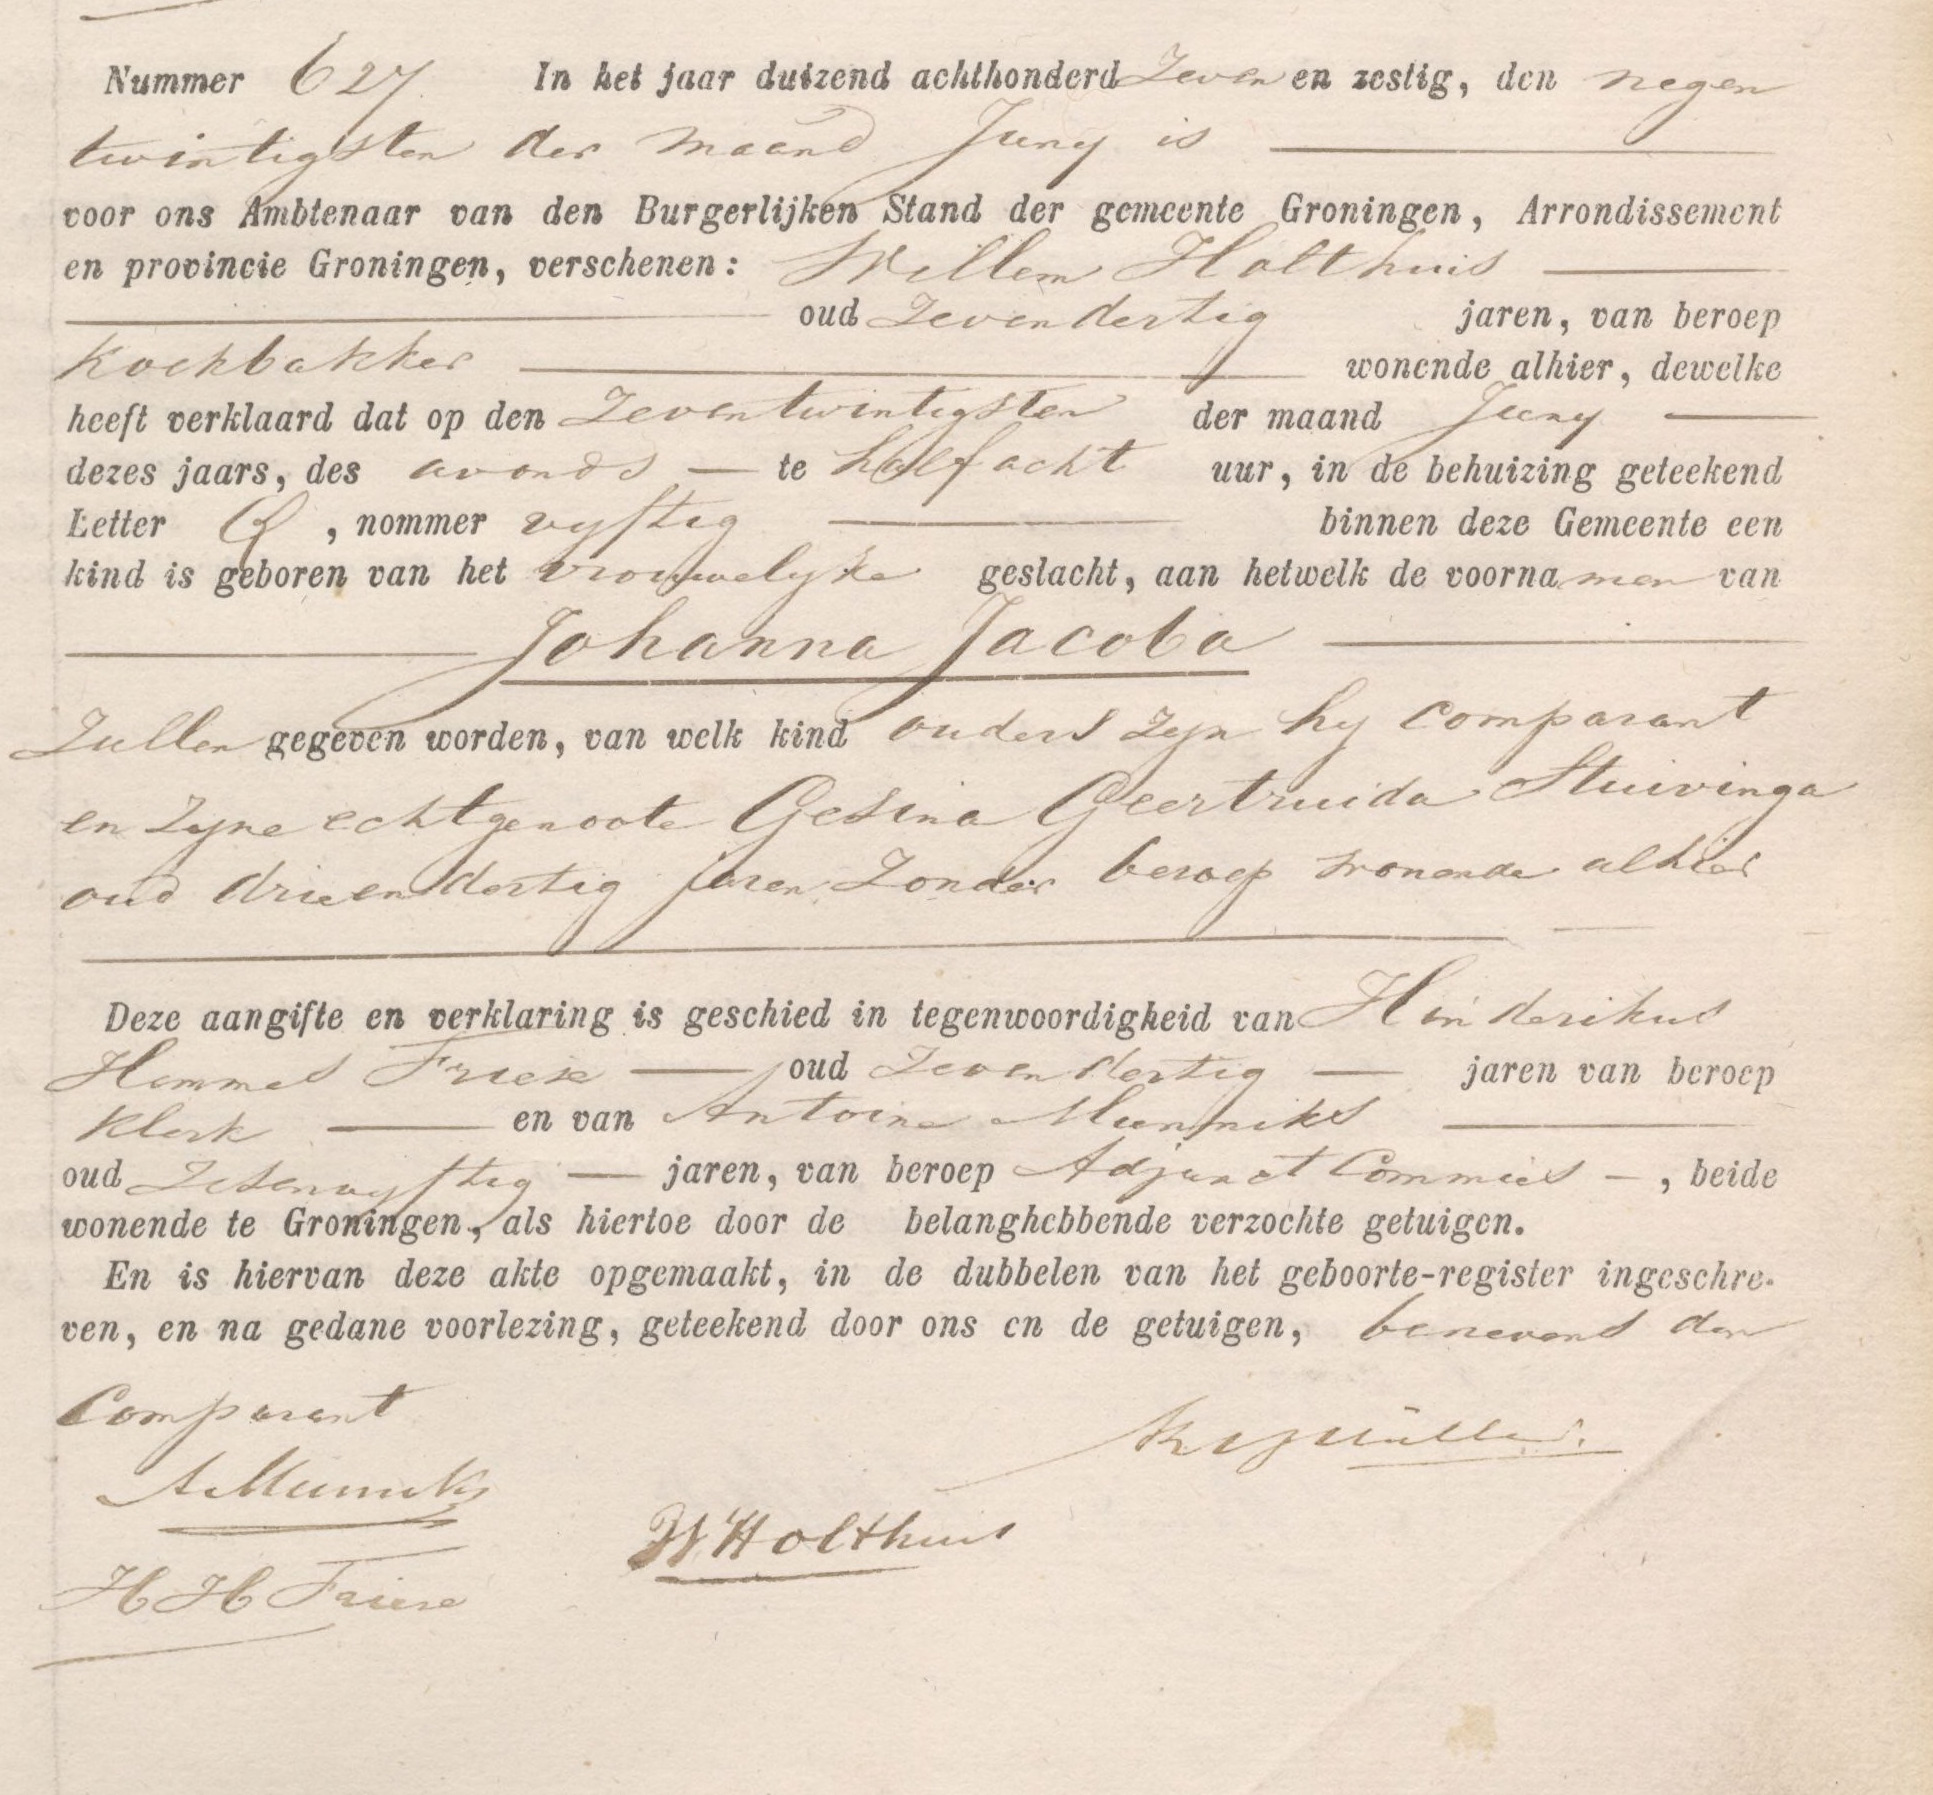 Nummer 627. In het jaar duizend achthonderd Zeven en zestig, den negen
twintigsten der maand Juny is
voor ons Ambtenaar van den Burgerlijken Stand der gemeente Groningen, Arrondissement
en provincie Groningen, verschenen: Willem Holthuis
oud Zevendertig jaren, van beroep
Koekbakker wonende alhier, dewelke
heeft verklaard dat op den Zeventwintigsten der maand Juny
dezes jaars, des avonds te half acht uur, in de behuizing geteekend
Letter Q, nommer vyftig binnen deze Gemeente een
kind is geboren van het vrouwelyke geslacht, aan hetwelk de voornamen van
Johanna Jacoba
Zullen gegeven worden, van welk kind ouders Zyn hy Comparant
en Zyne echtgenoote Gesina Geertruida Stuivinga
oud drieendertig jaren Zonder beroep wonende alhier
Deze aangifte en verklaring is geschied in tegenwoordigheid van Hinderikus
Hemmes Friese oud Zevendertig jaren van beroep
Klerk en van Antoine Munniks
oud Zesenvyftig jaren, van beroep Adjunct Commies, beide
wonende te Groningen, als hiertoe door de belanghebbende verzochte getuigen.
En is hiervan deze akte opgemaakt, in de dubbelen van het geboorte-register ingeschre-
ven, en na gedane voorlezing, geteekend door ons en de getuigen, benevens den
Comparant
Müller.
A Munniks
W Holthuis
H H Friese